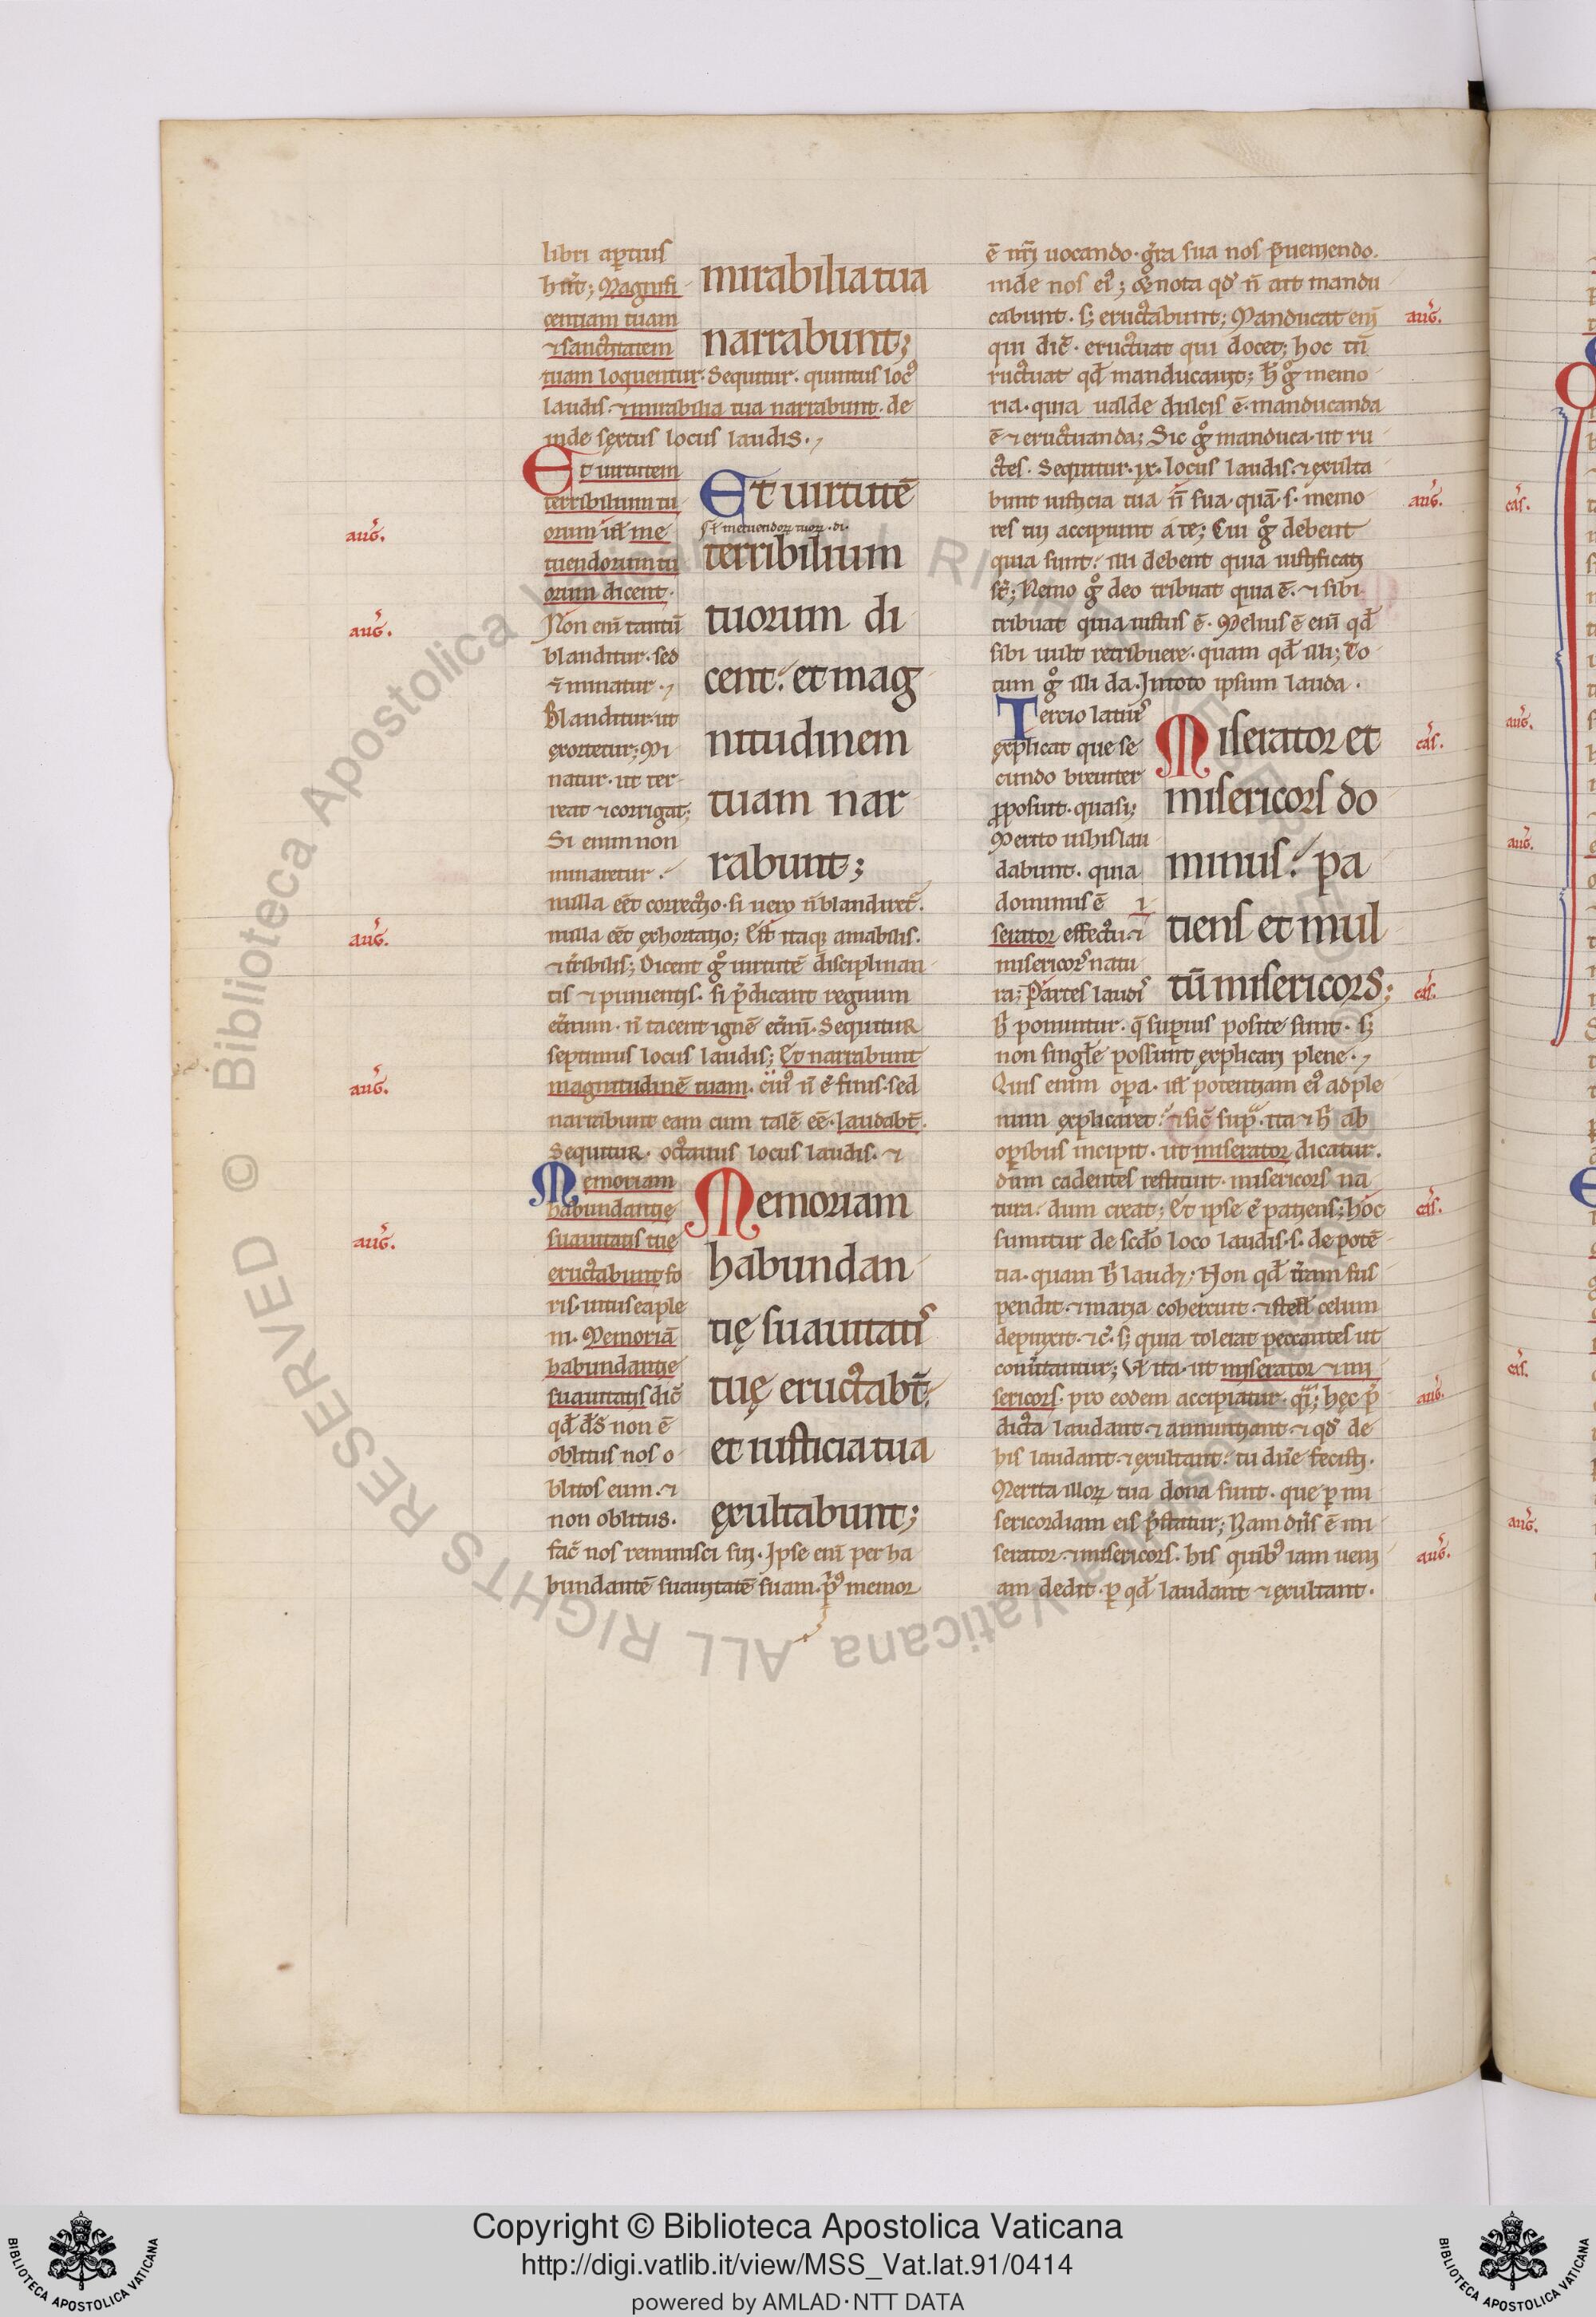 libri aptius
hñt; Magnifi
centiam tuam
⁊ sanctitatem
tuam loquentur. Sequitur. quintus locꝰ
laudis. ⁊ mirabilia tua narrabunt. de
inde sextus locus laudis.
mirabilia tua
narrabunt;
Et uirtutem
terribilium tu
orum
tuendorum tu
orum dicent.
Non eni tantũ
blanditur. sed
⁊ minatur.
Blanditur. ut
exortetur; Mi
natur. ut ter
reat ⁊ corrigat;
Si enim non
minaretur.
nulla eet correctio. si uero ñ blandiret.
nulla eet exhortatio; Est itaq; amabilis.
⁊ tribilis; Dicent gͦ uirtutẽ disciplinan
tis ⁊ punientis. si p̃dicant regnum
et̃num. ñ tacent ignẽ et̃nũ. Sequitur
septimus locus laudis; Et narrabunt
magnitudinẽ tuam. cuiꝰ ñ ẽ finis. sed
narrabunt eam cum talẽ eẽ. laudabt̃.
Sequitur. octauus locus laudis. ⁊
Et uirtutẽ
terribilium
tuorum di
cent. et mag
nitudinem
tuam nar
rabunt;
Memoriam
habundantie
suauitatis tue
eructabunt fo
ris. intus eaple
ni. Memoriã
habundantie
suauitatis dic̃
qd̃ ds̃ non ẽ
oblitus nos o
blitos eum. ⁊
non oblitus.
fac̃ nos reminisci sui. Ipse eni per ha
bundantẽ suauitatẽ suam. pꝰ memor
Memoriam
habundan
tię suauitatis
tuę eructabt̃.
et iusticia tua
exultabunt;
ẽ nr̃i uocando. gr̃a sua nos p̃ueniendo.
inde nos eiꝰ; Et nota qd̃ ñ ait mandu
cabunt. s; eructabunt; Manducat eni
qui dic̃. eructuat qui docet; hoc tñ
ructuat qd̃ manducauit; h̃ gͦ memo
ria. quia ualde dulcis ẽ. manducanda
ẽ ⁊ eructuanda; Sic gͦ manduca. ut ru
ctes. Sequitur. ix. locus laudis. ⁊ exulta
bunt iusticia tua ñ sua. quã. s. memo
res tui accipiunt a te; Cui gͦ debent
quia sunt. illi debent quia iustificati
st̃; Nemo gͦ deo tribuat quia ẽ. ⁊ sibi
tribuat quia iustus ẽ. Melius ẽ eni qd̃
sibi uult retribuere. quam qd̃ illi; To
tum gͦ illi da. In toto ipsum lauda.
Tercio latius
explicat que se
cundo breuiter
proposuit. quasi;
Merito nihis lau
dabunt. quia
dominus ẽ
serator effectu. ⁊
misericors natu
ra; Partes laudis
h̃ ponuntur. q̃ supius posite sunt. s;
non singl̃e possunt explicari plene.
Quis enim opa. potentiam eiꝰ ad ple
num explicaret ⁊ sic̃ sup. ita ⁊ h̃ ab
opibus incipit. ut miserator dicatur.
dum cadentes restituit. misericors na
tura. dum creat; Et ipse ẽ patiens; hoc
sumitur de scd̃o loco laudis. s. de potẽ
tia. quam h̃ laudat; Non qd̃ tr̃am sus
pendit. ⁊ maria cohercuit. ⁊ stell̃ celum
depinxit. ⁊c̃. s; quia tolerat peccantes ut
conuertantur; Vel ita. ut miserator ⁊ mi
sericors. pro eodem accipiatur. hęc p̃
dicta laudant. ⁊ annuntiant. ⁊ qd̃ de
his laudant. ⁊ exultant. tu dñe fecisti.
Merita illoꝝ tua dona sunt. que p mi
sericordiam eis p̃statur; Nam dñs ẽ mi
serator. ⁊ misericors. his quibꝰ iam ueni
am dedit. p qd̃ laudant ⁊ exultant.
Miserator et
misericors do
minus. pa
tiens et mul
tũ misericors;
aug̃.
aug̃.
aug̃.
aug̃.
aug̃.
aug̃.
aug̃.
cas̃.
cas̃.
cas̃.
aug̃.
aug̃.
cas̃.
aug̃.
aug̃.
cas̃.
aug̃.
© Biblioteca Apostolica Vaticana ALL RIGHTS RESERVED
Copyright © Biblioteca Apostolica Vaticana
http://digi.vatlib.it/view/MSS_Vat.lat.91/0414
powered by AMLAD·NTT DATA
BIBLIOTECA APOSTOLICA VATICANA
BIBLIOTECA APOSTOLICA VATICANA